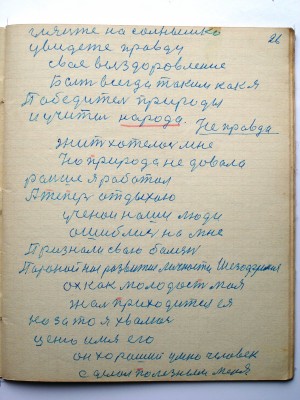 гляите на солнышко
26
увидете правду
свае выздоровление
Быт всегда таким как я
Победител природы
и учител народа. Не правда
жит хотелос мне
Но природа не довала
раньше я работал
А тепер отдыхаю
ученои наши люди
ошиблис на мне
Признали сваю балезн
Параноiное развитие личности Шизофрения
ох как молодост моя
жал приходится ея
но за то я хвалюс
цень имя его
он хороший умно человек
сделал полезным меня